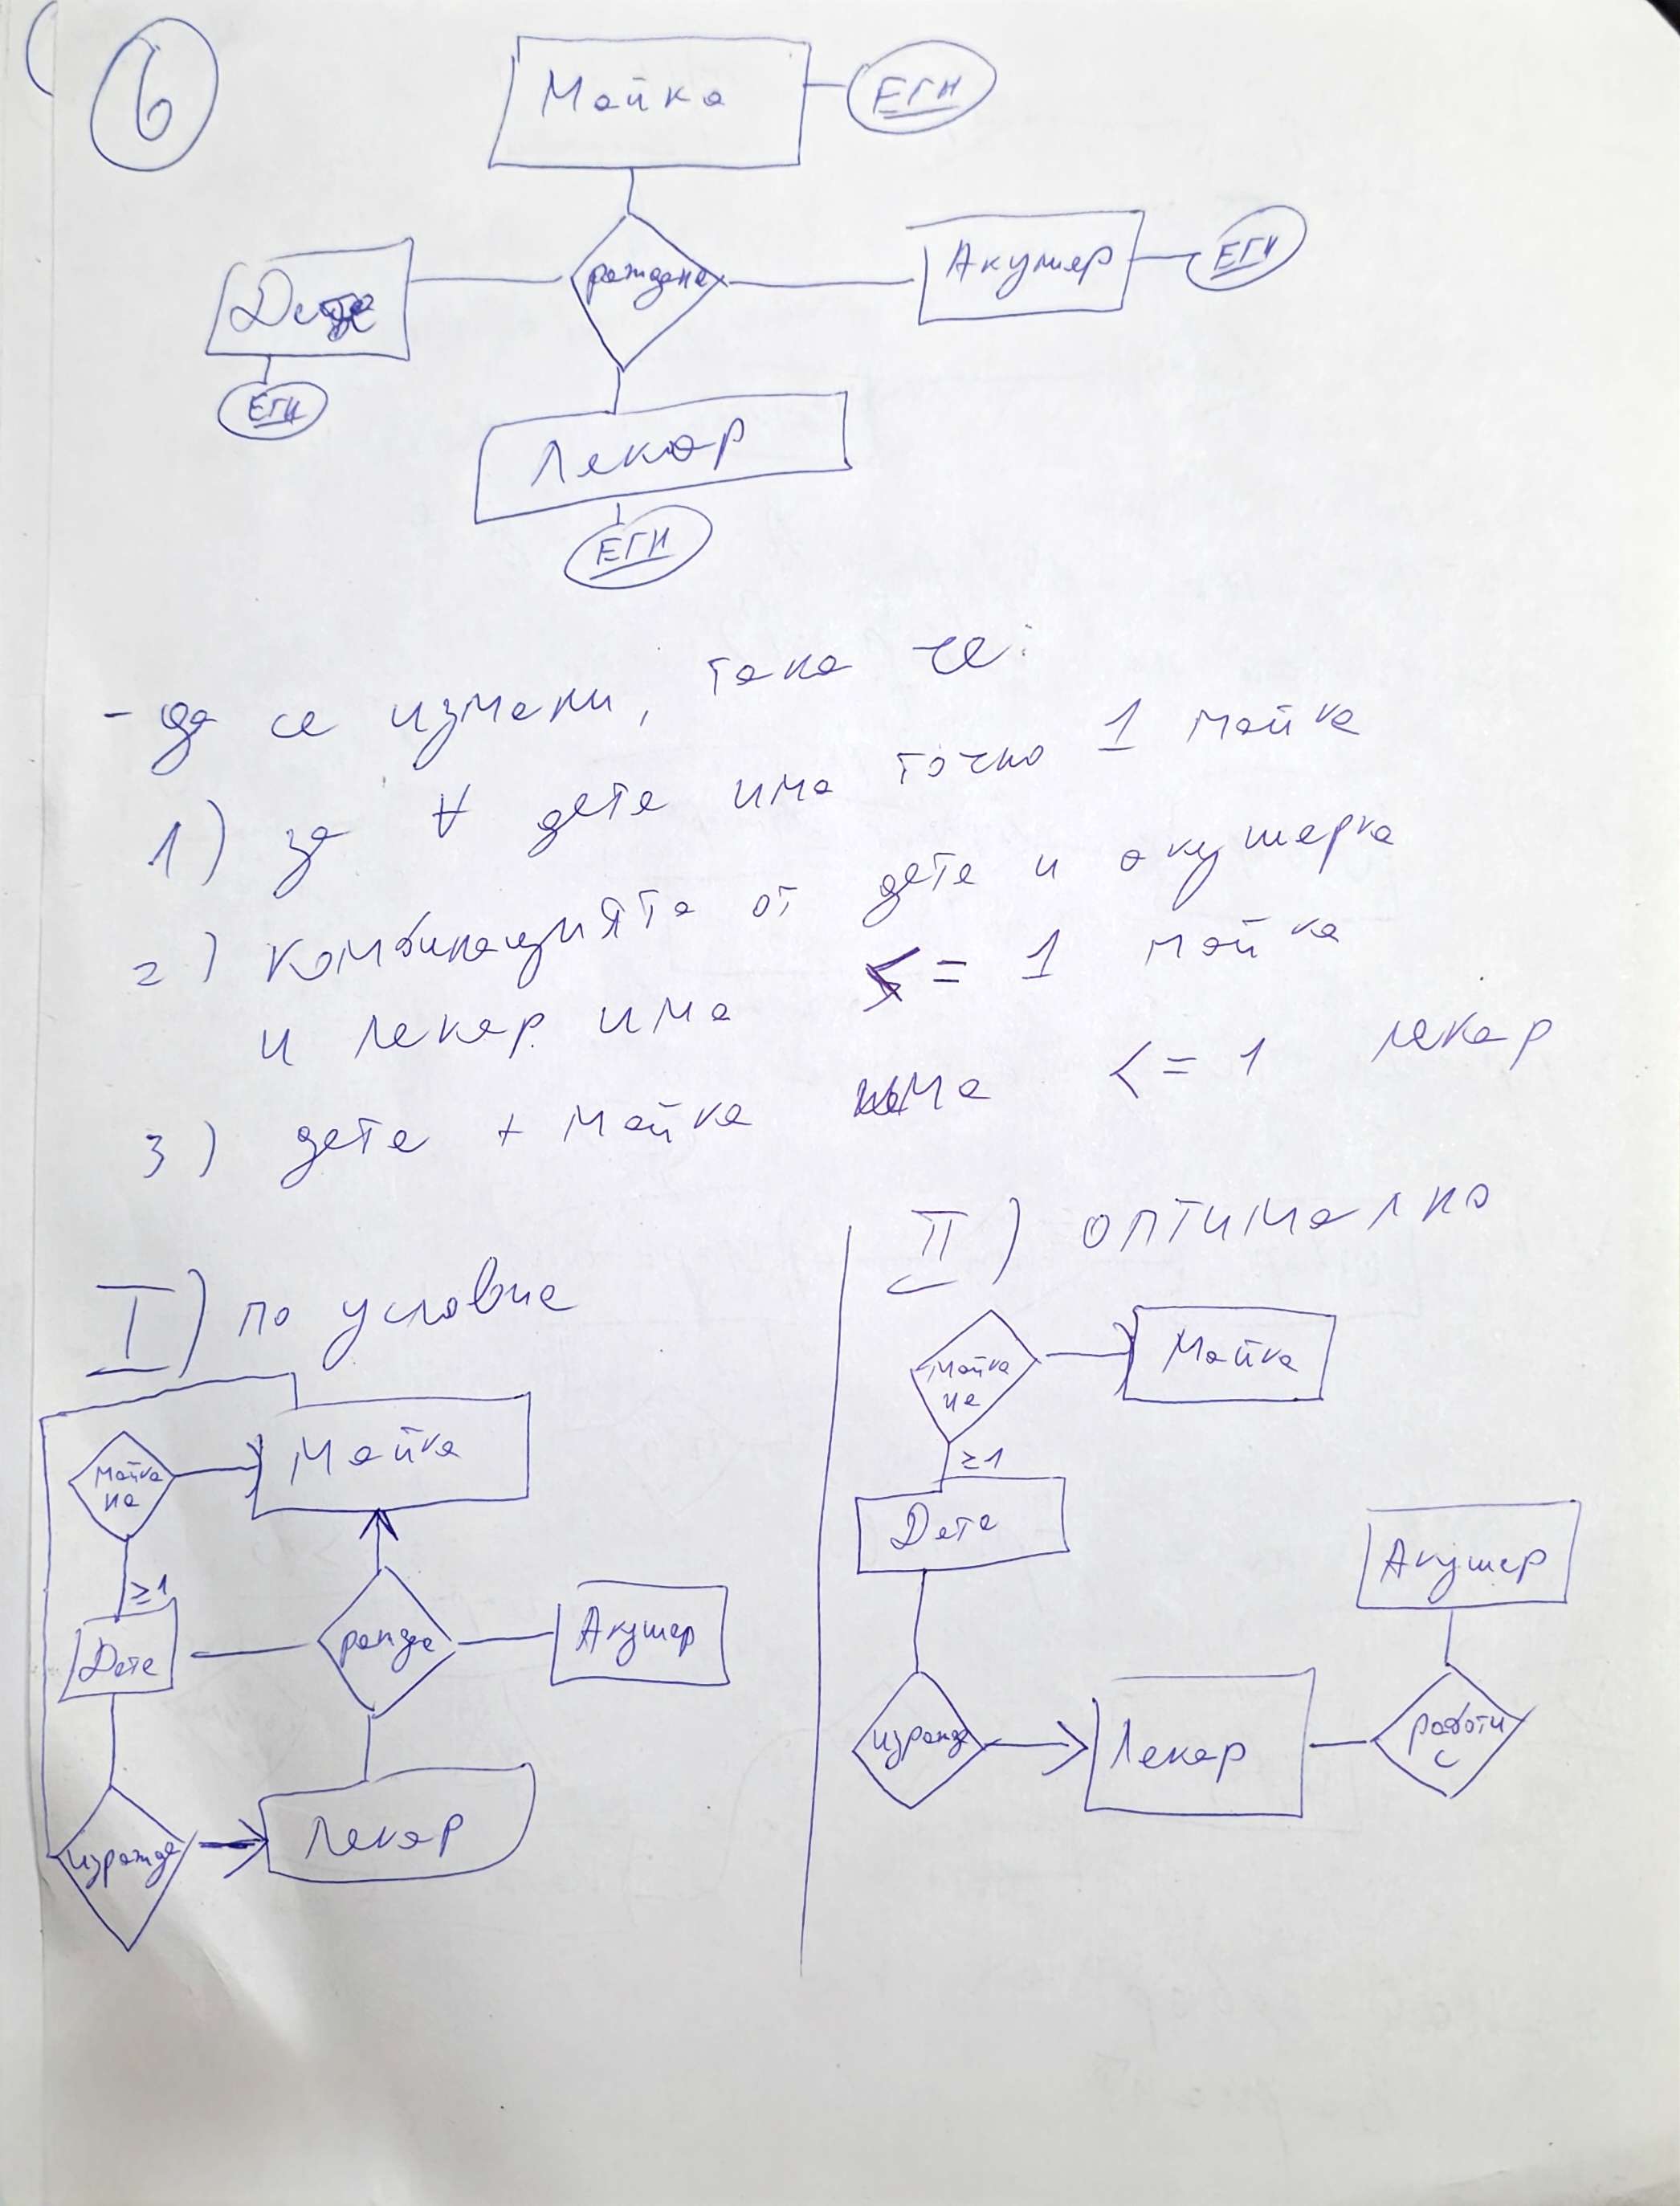 6
Майка
ЕГН
раждане
Акушер
ЕГН
Дете
ЕГН
Лекар
ЕГН
- да се измени, така че:
1) за ∀ дете има точно 1 майка
2) комбинацията от дете и акушерка
и лекар има <= 1 майка
3) дете + майка има <= 1 лекар
I) по условие
Майка
Майка
на
≥1
Дете
ражда
Акушер
изражда
Лекар
II) оптимално
Майка
на
Майка
≥1
Дете
Акушер
изражд
Лекар
работи
с